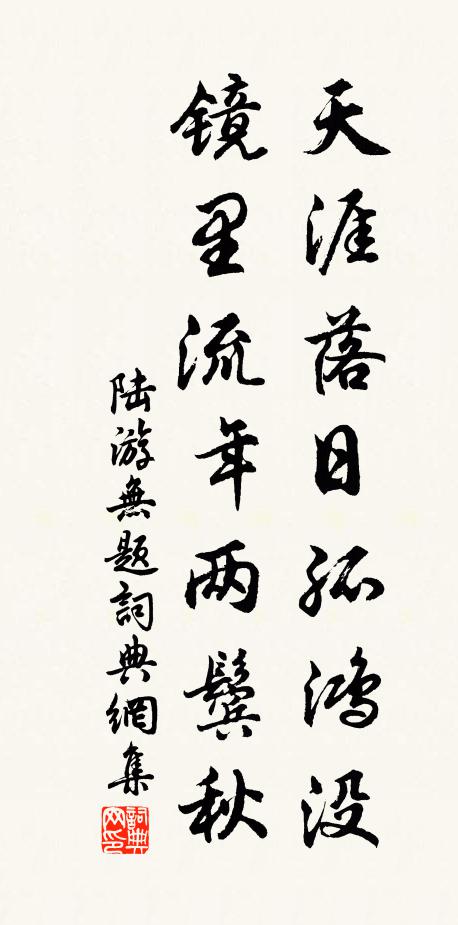 天涯落日孤鸿没
镜里流年两鬓秋
陆游無题詞典網集
詞典网印